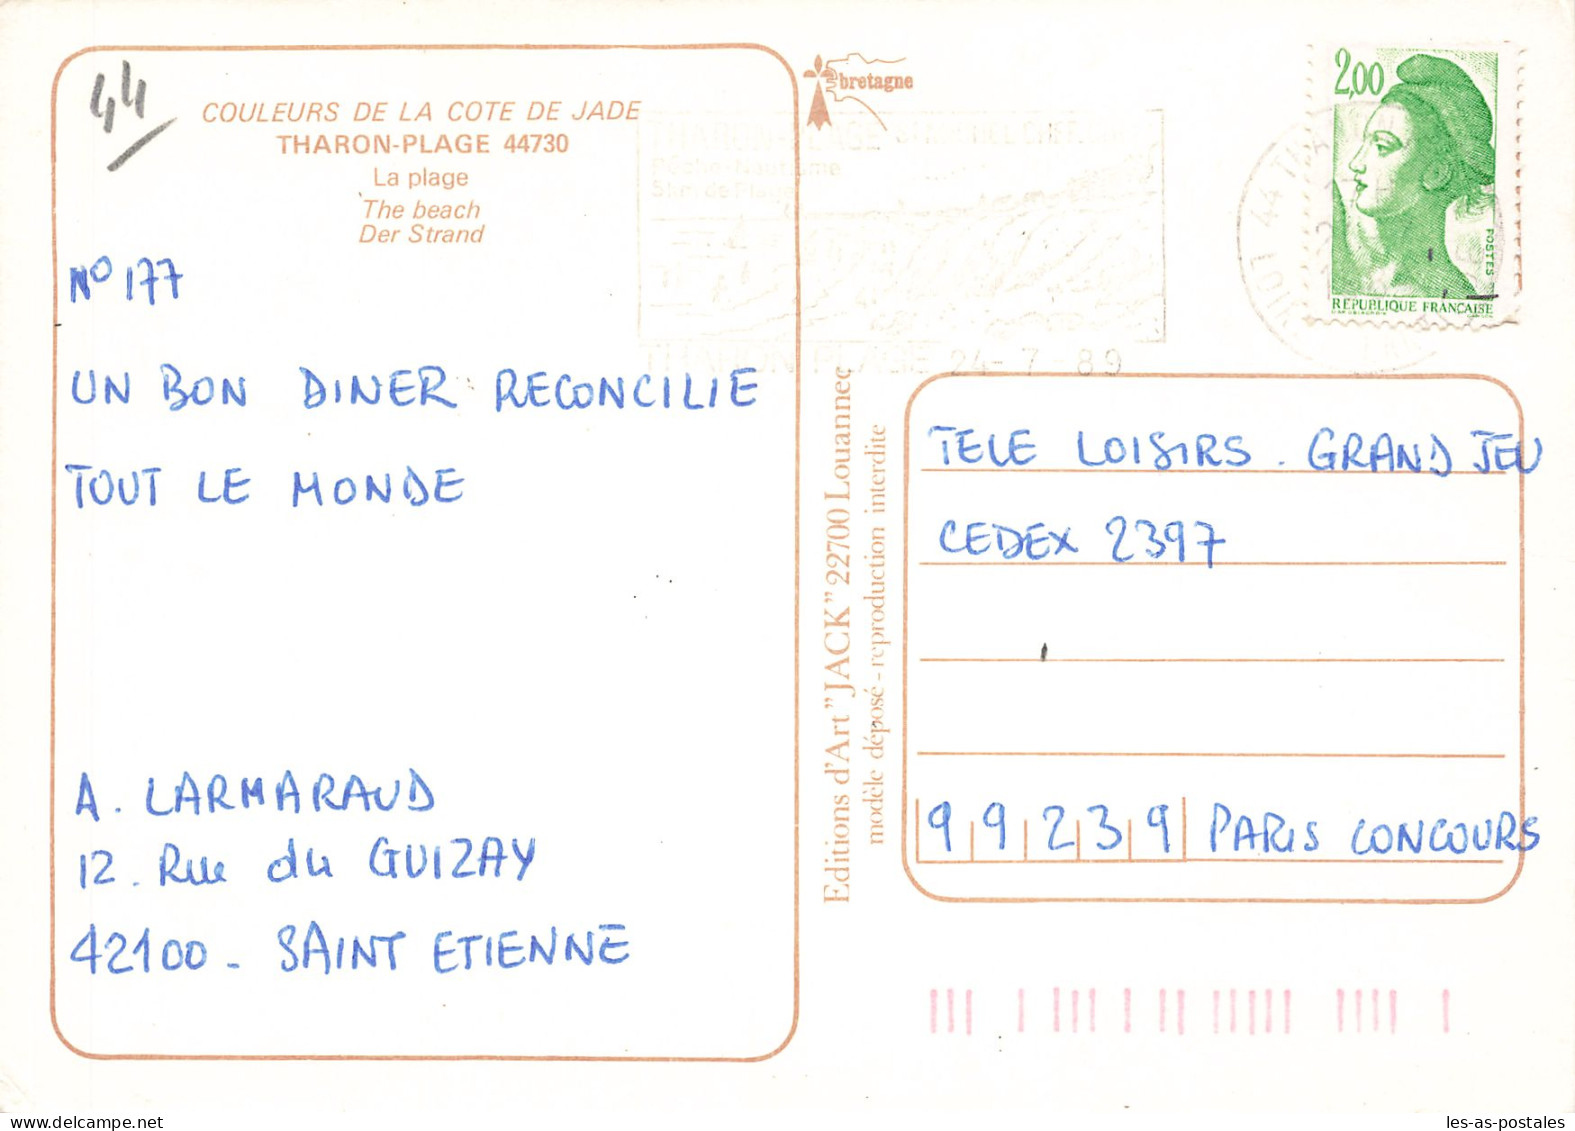 44
COULEURS DE LA COTE DE JADE
THARON-PLAGE 44730
La plage
The beach
Der Strand
bretagne
THARON-PLAGE
Pêche Nautisme
THARON PLAGE 24-7-89
2,00
POSTES
REPUBLIQUE FRANÇAISE
N° 177
UN BON DINER RECONCILIE
TOUT LE MONDE
A. LARMARAUD
12. Rue du GUIZAY
42100 - SAINT ETIENNE
Editions d'Art "JACK" 22700 Louannec
modèle déposé - reproduction interdite
TELE LOISIRS. GRAND JEU
CEDEX 2397
99239 PARIS CONCOURS
les-as-postales